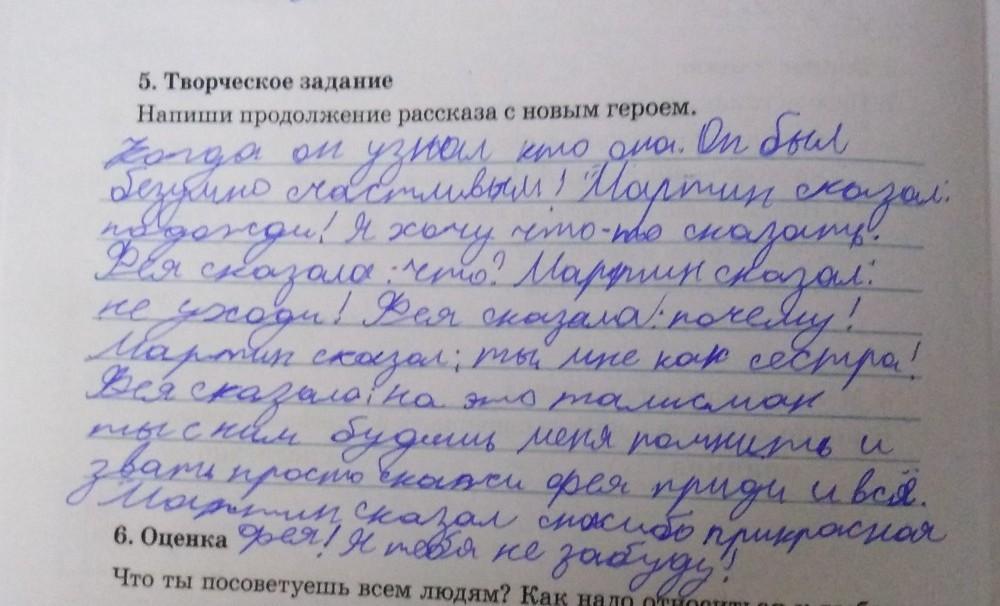 5. Творческое задание
Напиши продолжение рассказа с новым героем.
Когда он узнал кто она. Он был
безумно счастливым! Мартин сказал:
подожди! Я хочу что-то сказать.
Фея сказала: что? Мартин сказал:
не уходи! Фея сказала: почему!
Мартин сказал; ты мне как сестра!
Фея сказала: на это талисман
ты с ним будишь меня помнить и
звать просто скажи фея приди и всё.
Мартин сказал спасибо прикрасная
6. Оценка фея! Я тебя не забуду!
Что ты посоветуешь всем людям? Как надо относиться к